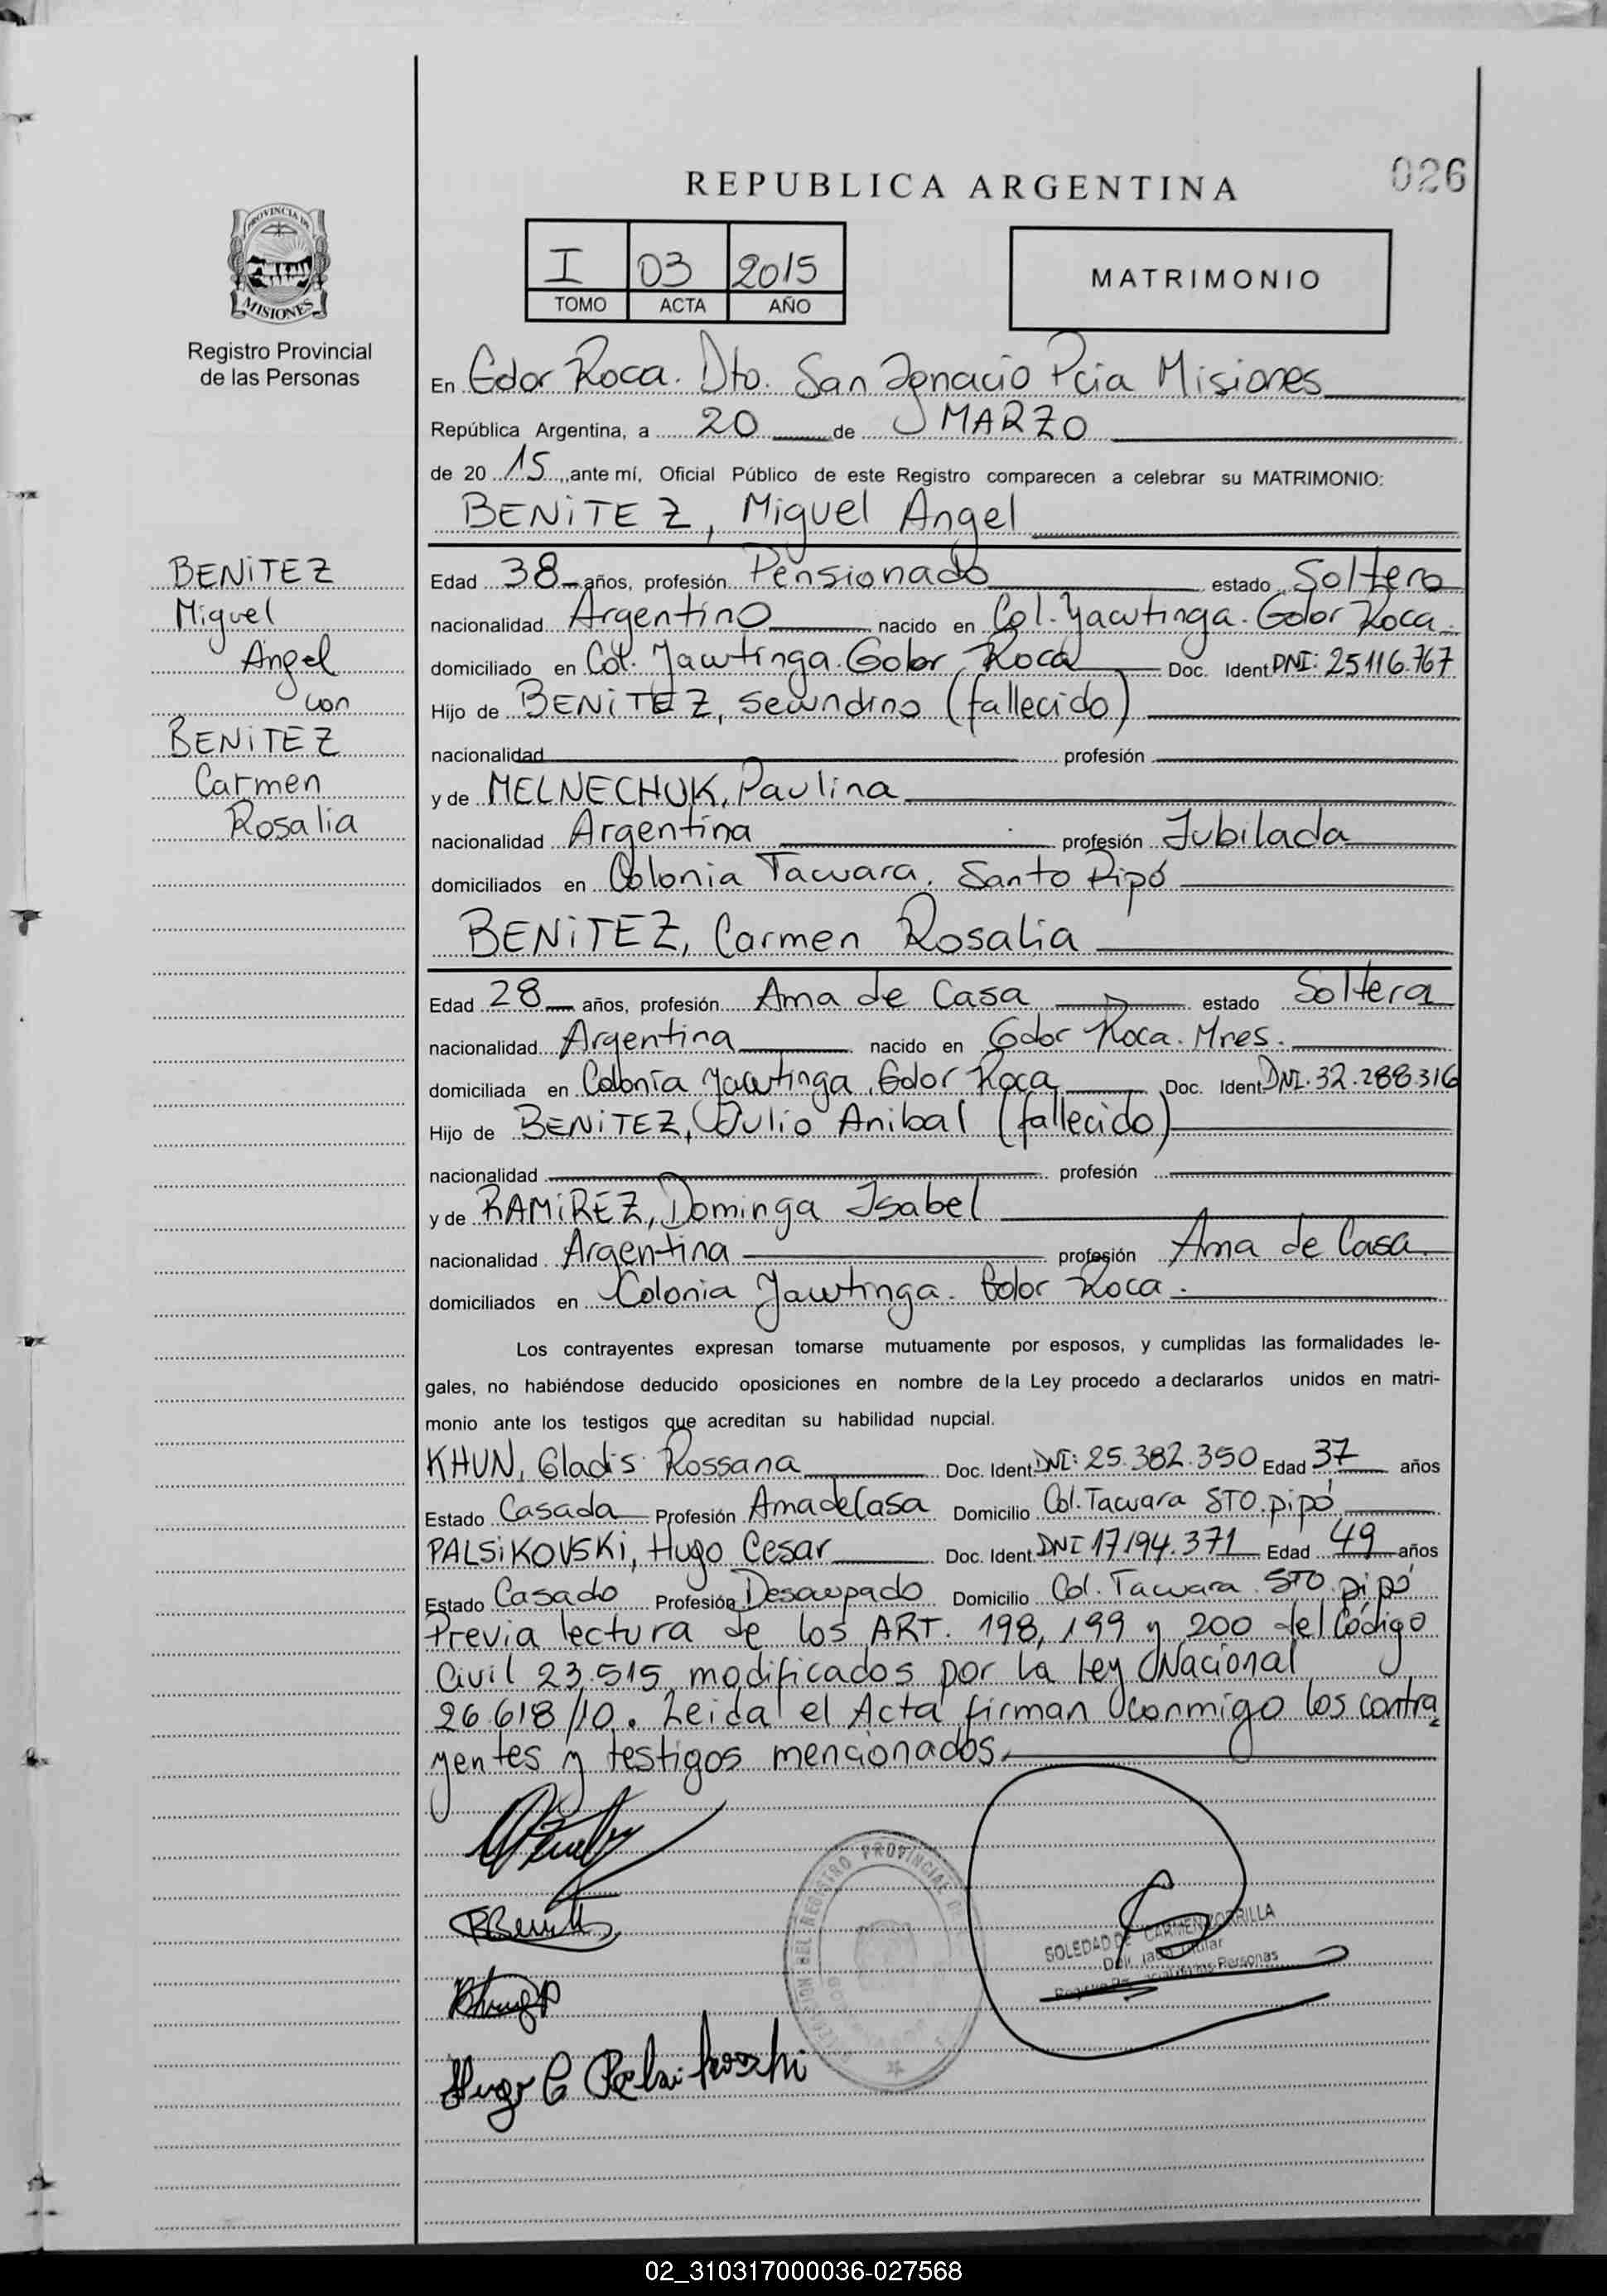 REPUBLICA ARGENTINA
026
PROVINCIA DE
MISIONES
Registro Provincial
de las Personas
I 03 2015
TOMO ACTA AÑO
MATRIMONIO
En Gdor Roca. Dto. San Ignacio Pcia Misiones
República Argentina, a 20 de MARZO
de 20 15, ante mí, Oficial Público de este Registro comparecen a celebrar su MATRIMONIO:
BENITEZ, Miguel Angel
BENITEZ
Miguel
Angel
con
BENITEZ
Carmen
Rosalia
Edad 38 años, profesión Pensionado estado Soltero
nacionalidad Argentino nacido en Col. Yacutinga. Gdor Roca.
domiciliado en Col. Yacutinga. Gdor Roca Doc. Ident DNI: 25116.767
Hijo de BENITEZ, Secundino (fallecido)
nacionalidad profesión
y de MELNECHUK, Paulina
nacionalidad Argentina profesión Jubilada
domiciliados en Colonia Tacuara. Santo Pipó
BENITEZ, Carmen Rosalia
Edad 28 años, profesión Ama de Casa estado Soltera
nacionalidad Argentina nacido en Gdor Roca. Mnes.
domiciliada en Colonia Yacutinga. Gdor Roca Doc. Ident DNI. 32.288.316
Hijo de BENITEZ, Julio Anibal (fallecido)
nacionalidad profesión
y de RAMIREZ, Dominga Isabel
nacionalidad Argentina profesión Ama de Casa.
domiciliados en Colonia Yacutinga. Gdor Roca.
Los contrayentes expresan tomarse mutuamente por esposos, y cumplidas las formalidades le-
gales, no habiéndose deducido oposiciones en nombre de la Ley procedo a declararlos unidos en matri-
monio ante los testigos que acreditan su habilidad nupcial.
KHUN, Gladis Rossana Doc. Ident DNI: 25.382.350 Edad 37 años
Estado Casada Profesión Ama de Casa Domicilio Col. Tacuara STO. pipó
PALSIKOVSKI, Hugo Cesar Doc. Ident. DNI 17194.371 Edad 49 años
Estado Casado Profesión Desocupado Domicilio Col. Tacuara STO. pipó
Previa lectura de los ART. 198, 199 y 200 del Código
Civil 23.515 modificados por la ley Nacional
26.618/10. Leida el Acta firman conmigo los contra
yentes y testigos mencionados.
REGISTRO PROVINCIAL DE
SOLEDAD DE CARMEN ZORRILLA
Titular
Personas
Hugo C Palsikovski
02_310317000036-027568